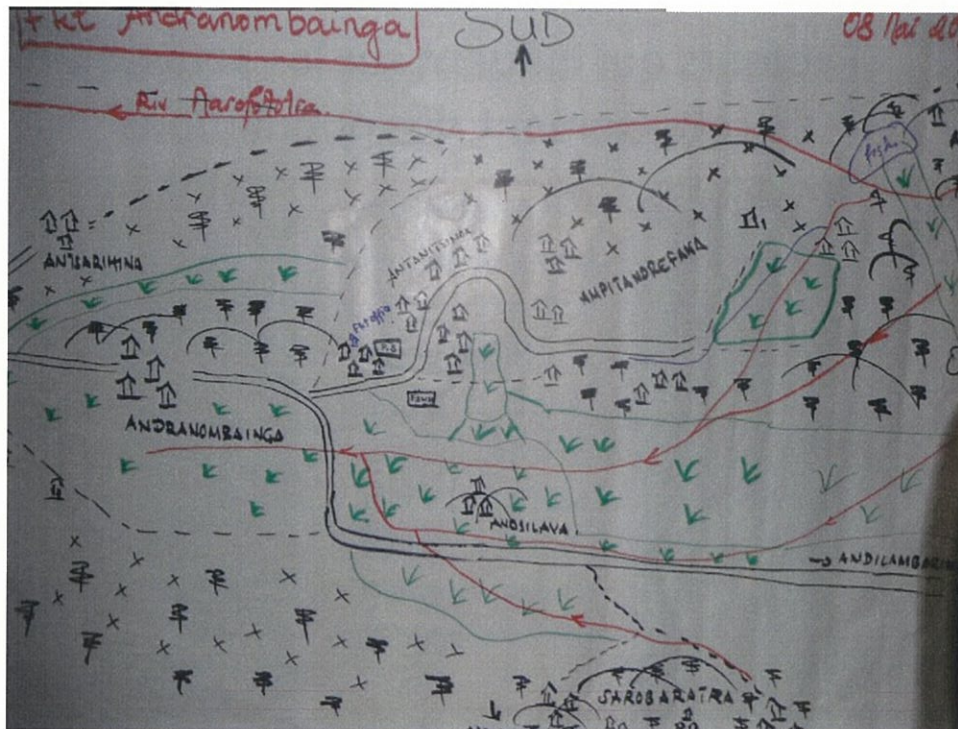 Fkt Andranombainga
SUD
08 Mai 20
Riv
ANTSARIHINA
ANTANITSINGA
AMPITANDREFANA
ANDRANOMBAINGA
ANOSILAVA
ANDILAMBARI
SAROBARATRA